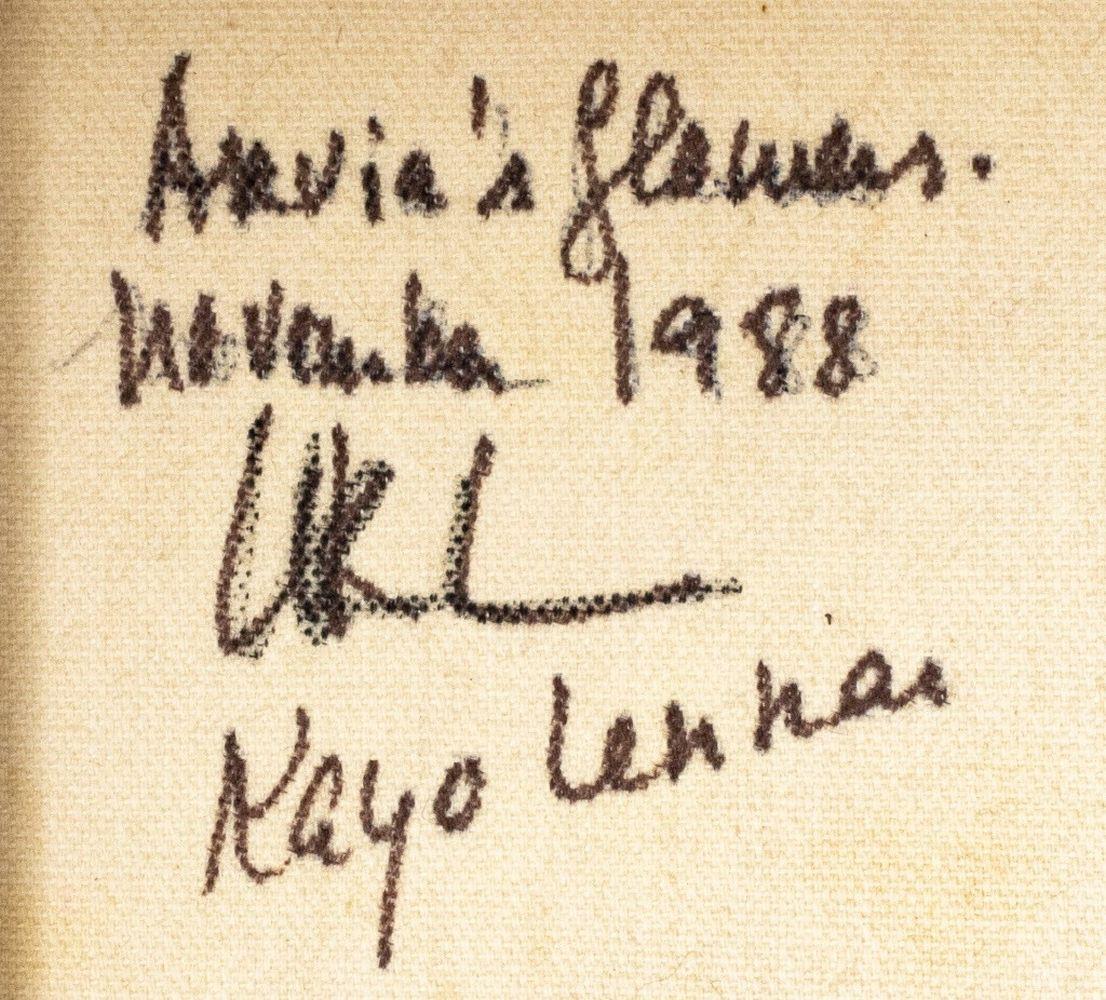 Anovia's flowers.
November 1988
KL
Kayo Lennar